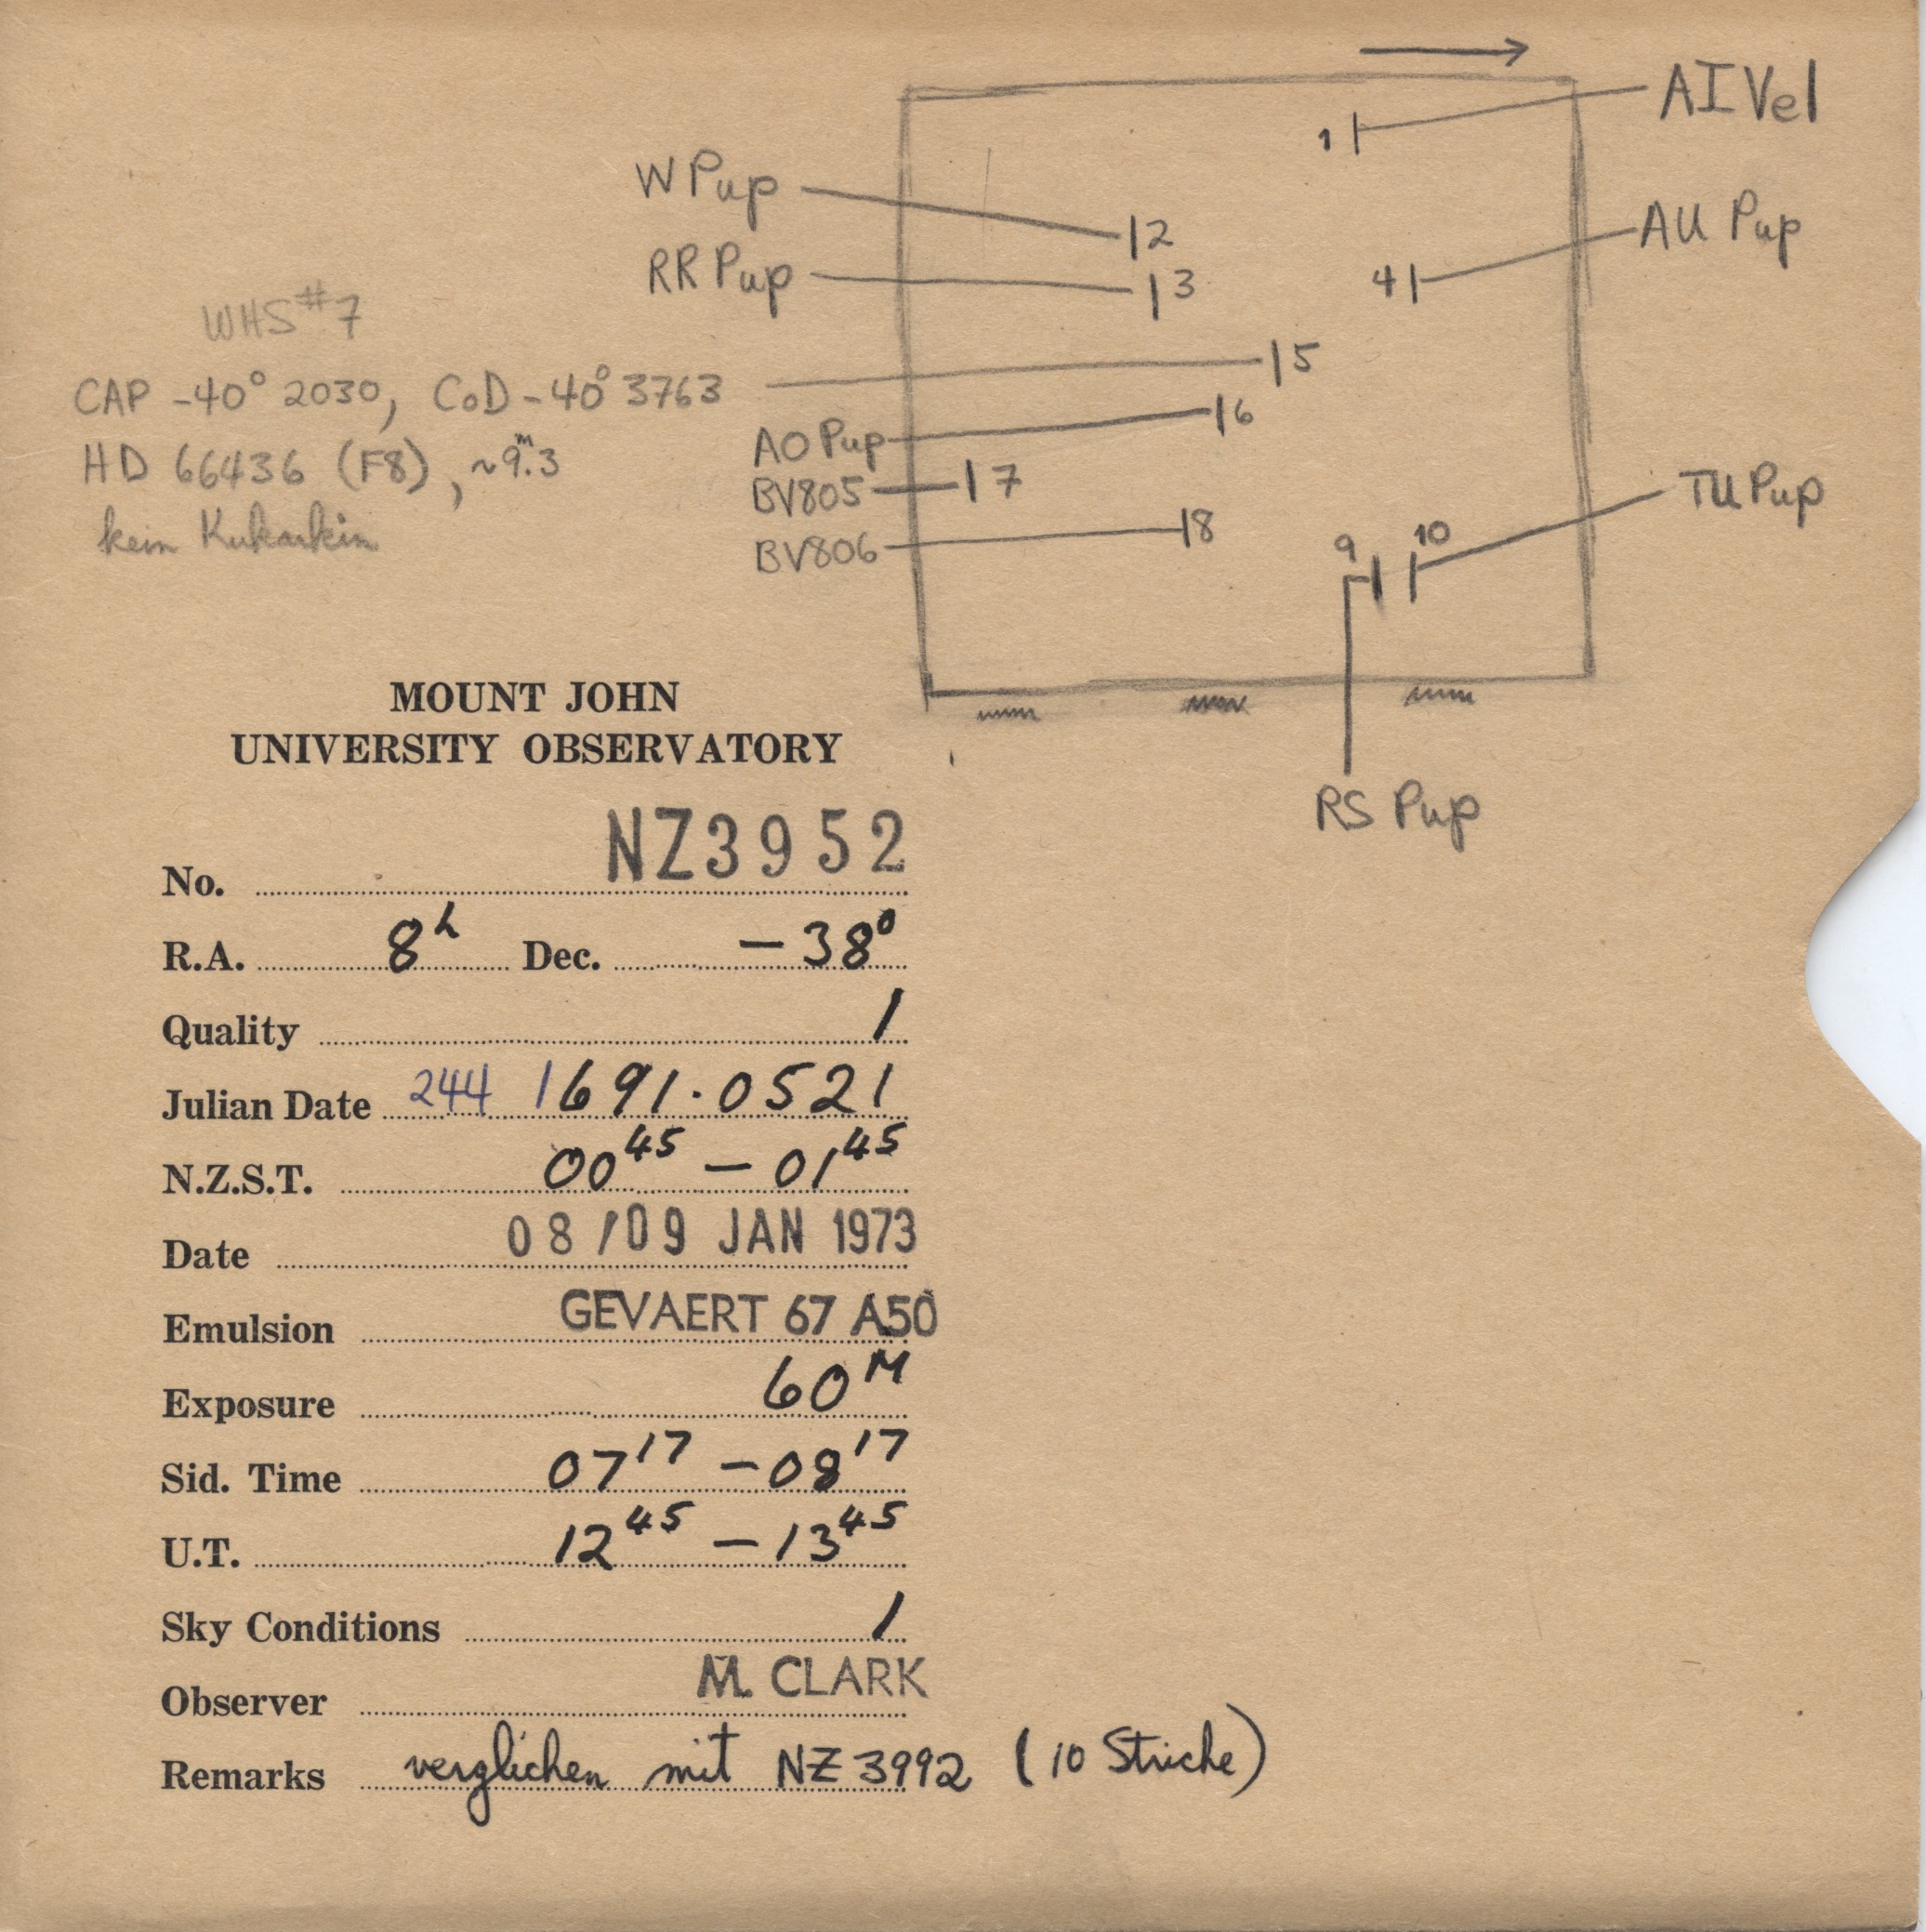 AI Vel
1
W Pup
12
AU Pup
RR Pup
13
4
WHS #7
15
CAP -40° 2030, CoD -40° 3763
16
AO Pup
HD 66436 (F8), ~9ᵐ.3
BV805
17
TU Pup
kein Kukarkin
BV806
18
9
10
RS Pup
MOUNT JOHN
UNIVERSITY OBSERVATORY
No. NZ3952
R.A. 8ʰ Dec. -38°
Quality 1
Julian Date 244 1691.0521
N.Z.S.T. 00⁴⁵ - 01⁴⁵
Date 08/09 JAN 1973
Emulsion GEVAERT 67 A50
Exposure 60ᴹ
Sid. Time 07¹⁷ - 08¹⁷
U.T. 12⁴⁵ - 13⁴⁵
Sky Conditions 1
Observer M. CLARK
Remarks verglichen mit NZ 3992 (10 Striche)